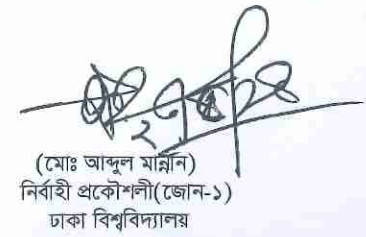 (মোঃ আব্দুল মান্নান)
নির্বাহী প্রকৌশলী(জোন-১)
ঢাকা বিশ্ববিদ্যালয়